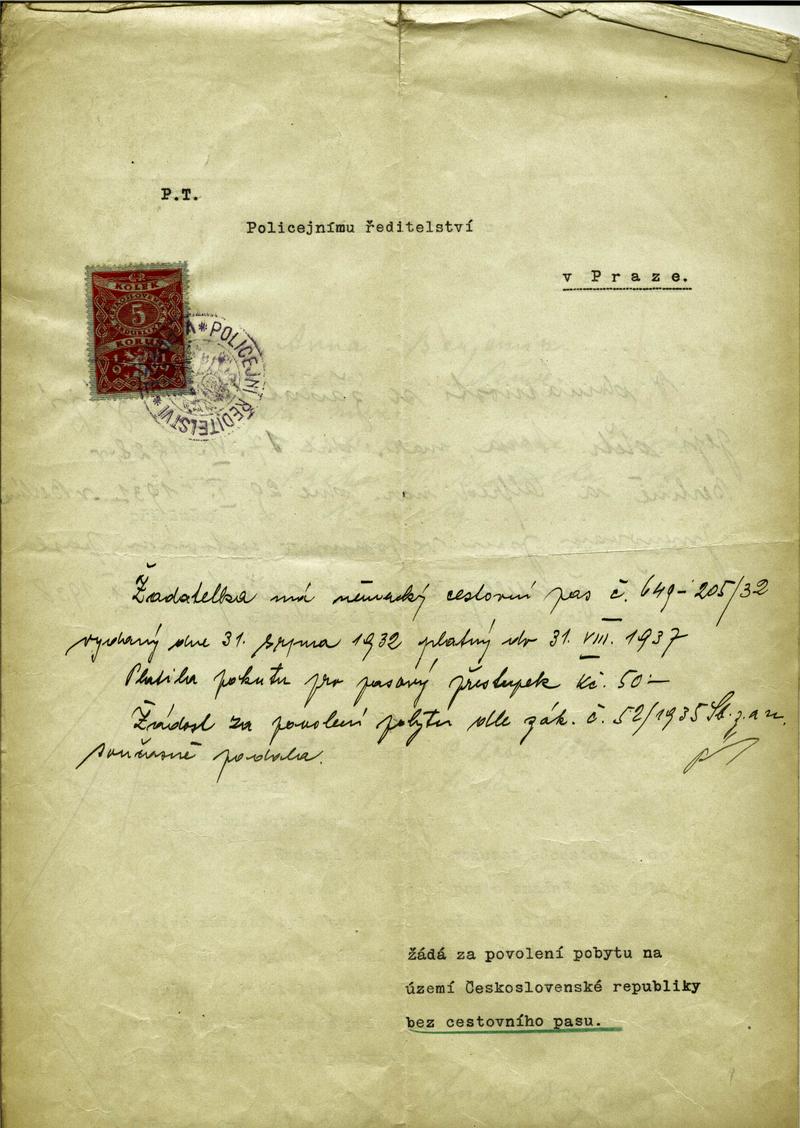 P.T.
Policejnímu ředitelství
v Praze.
KOLEK
5
KORUN
POLICEJNÍ ŘEDITELSTVÍ
Žadatelka má německý cestovní pas č. 649-205/32
vydaný dne 31. srpna 1932 platný do 31. VIII. 1937
Platila pokutu pro pasový přestupek Kč. 50.-
Žádost za povolení pobytu dle zák. č. 52/1935 Sb. z. a n.
současně podala.
žádá za povolení pobytu na
území Československé republiky
bez cestovního pasu.